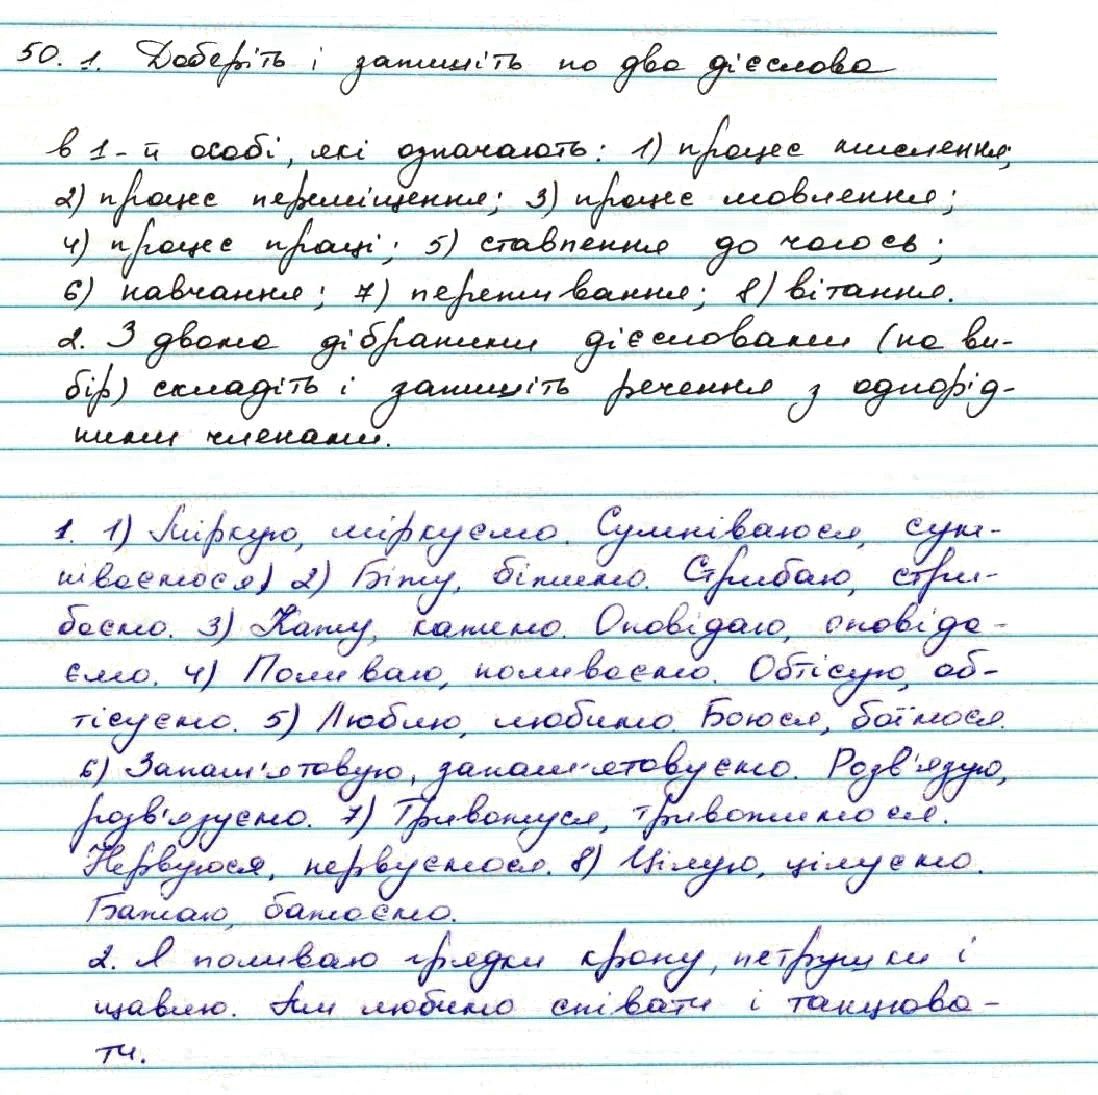 50. 1. Доберіть і запишіть по два дієслова
в 1-й особі, які означають: 1) процес мислення;
2) процес переміщення; 3) процес мовлення;
4) процес праці; 5) ставлення до чогось;
6) навчання; 7) переживання; 8) вітання.
2. З двома дібраними дієсловами (на ви-
бір) складіть і запишіть речення з однорід-
ними членами.
1. 1) Міркую, міркуємо. Сумніваюся, сум-
ніваємося) 2) Біжу, біжимо. Стрибаю, стри-
баємо. 3) Кажу, кажемо. Оповідаю, оповіда-
ємо. 4) Поливаю, поливаємо. Обтісую, об-
тісуємо. 5) Люблю, любимо. Боюся, боїмося.
6) Запам'ятовую, запам'ятовуємо. Розв'язую,
розв'язуємо. 7) Тривожуся, тривожимося.
Нервуюся, нервуємося. 8) Цілую, цілуємо.
Бажаю, бажаємо.
2. Я поливаю грядки кропу, петрушки і
щавлю. Ми любимо співати і танцюва-
ти.